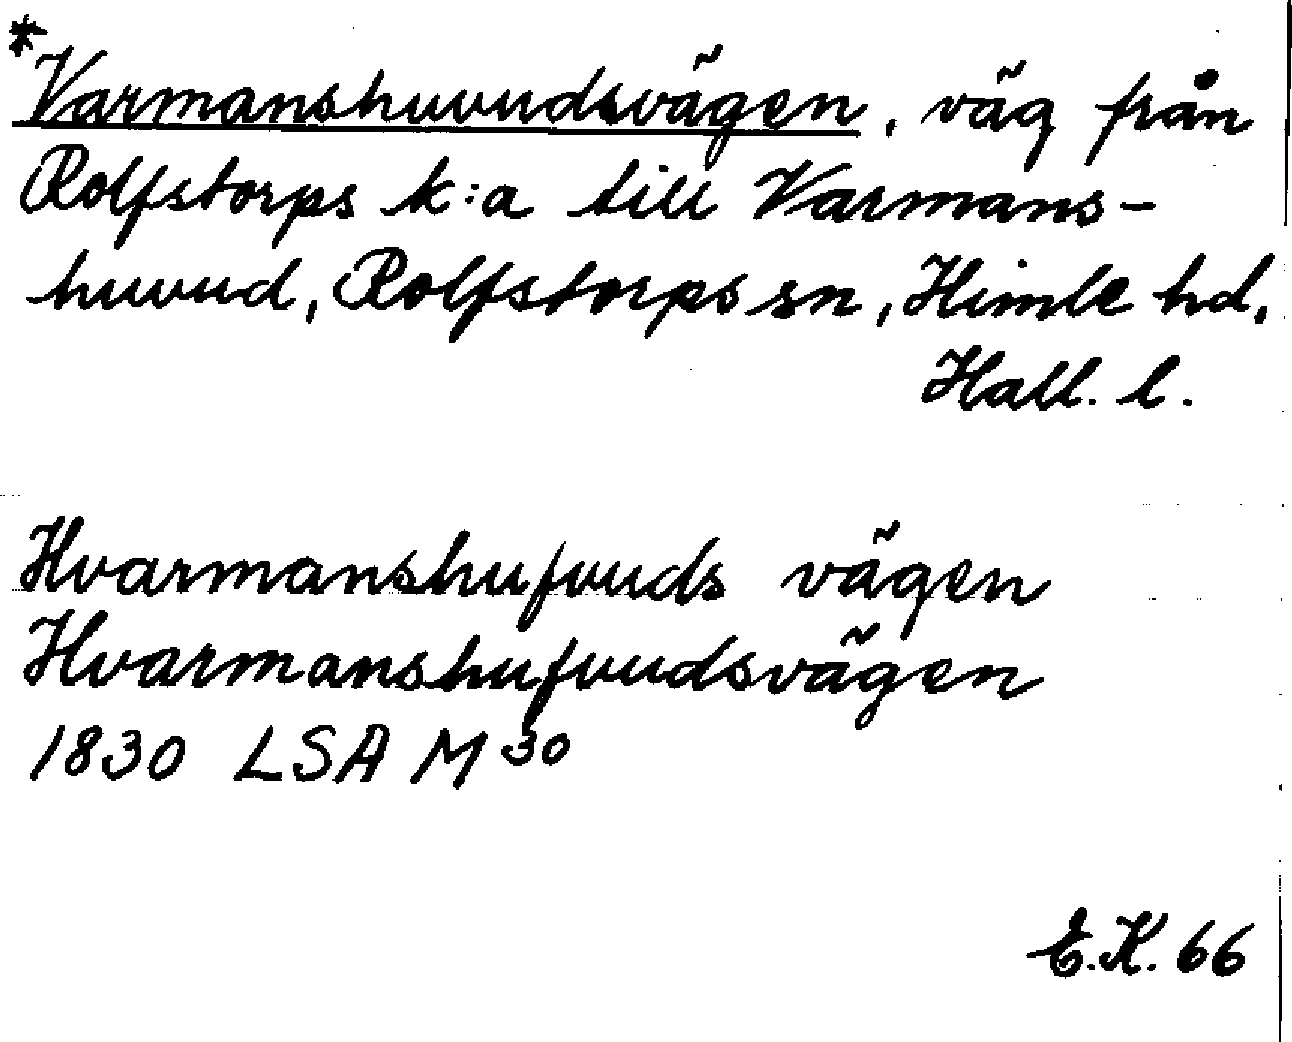 *Varmanshuvudsvägen, väg från
Rolfstorps k:a till Varmans-
huvud, Rolfstorps sn, Himle hd,
Hall. l.
Hvarmanshufvuds vägen
Hvarmanshufvudsvägen
1830 LSA M 30
E.K. 66